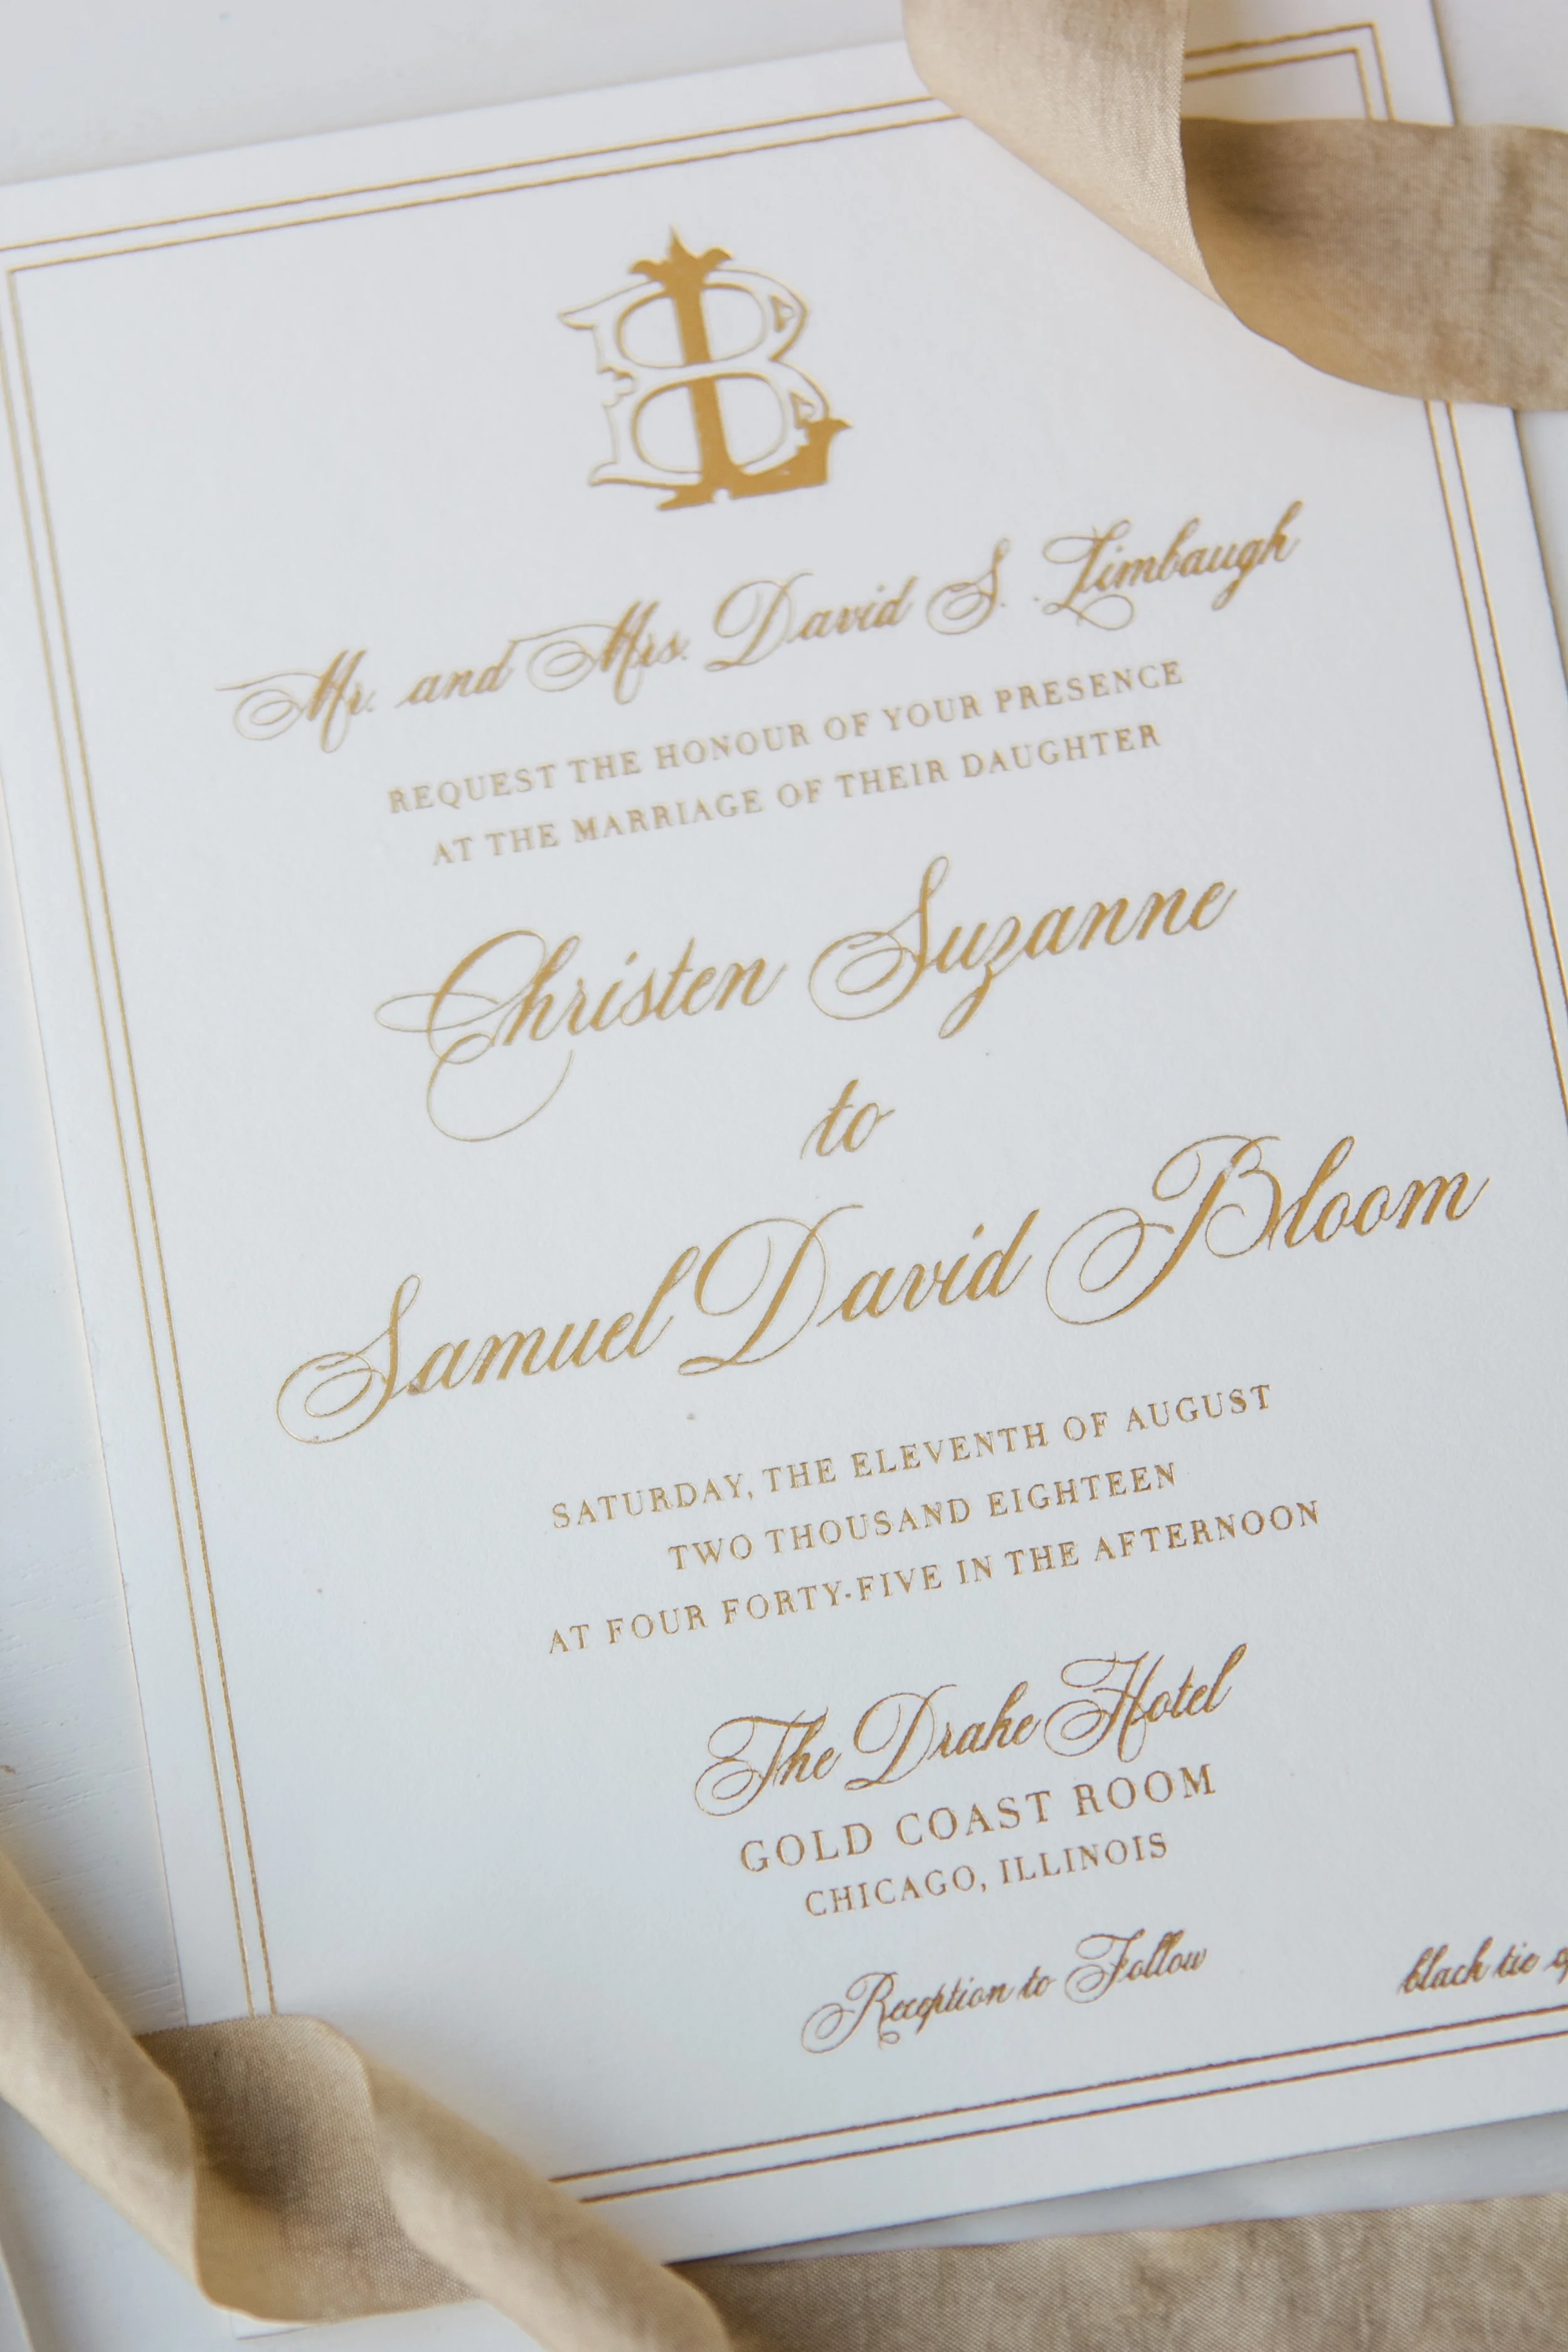 LB
Mr. and Mrs. David S. Limbaugh
REQUEST THE HONOUR OF YOUR PRESENCE
AT THE MARRIAGE OF THEIR DAUGHTER
Christen Suzanne
to
Samuel David Bloom
SATURDAY, THE ELEVENTH OF AUGUST
TWO THOUSAND EIGHTEEN
AT FOUR FORTY-FIVE IN THE AFTERNOON
The Drake Hotel
GOLD COAST ROOM
CHICAGO, ILLINOIS
Reception to Follow
black tie